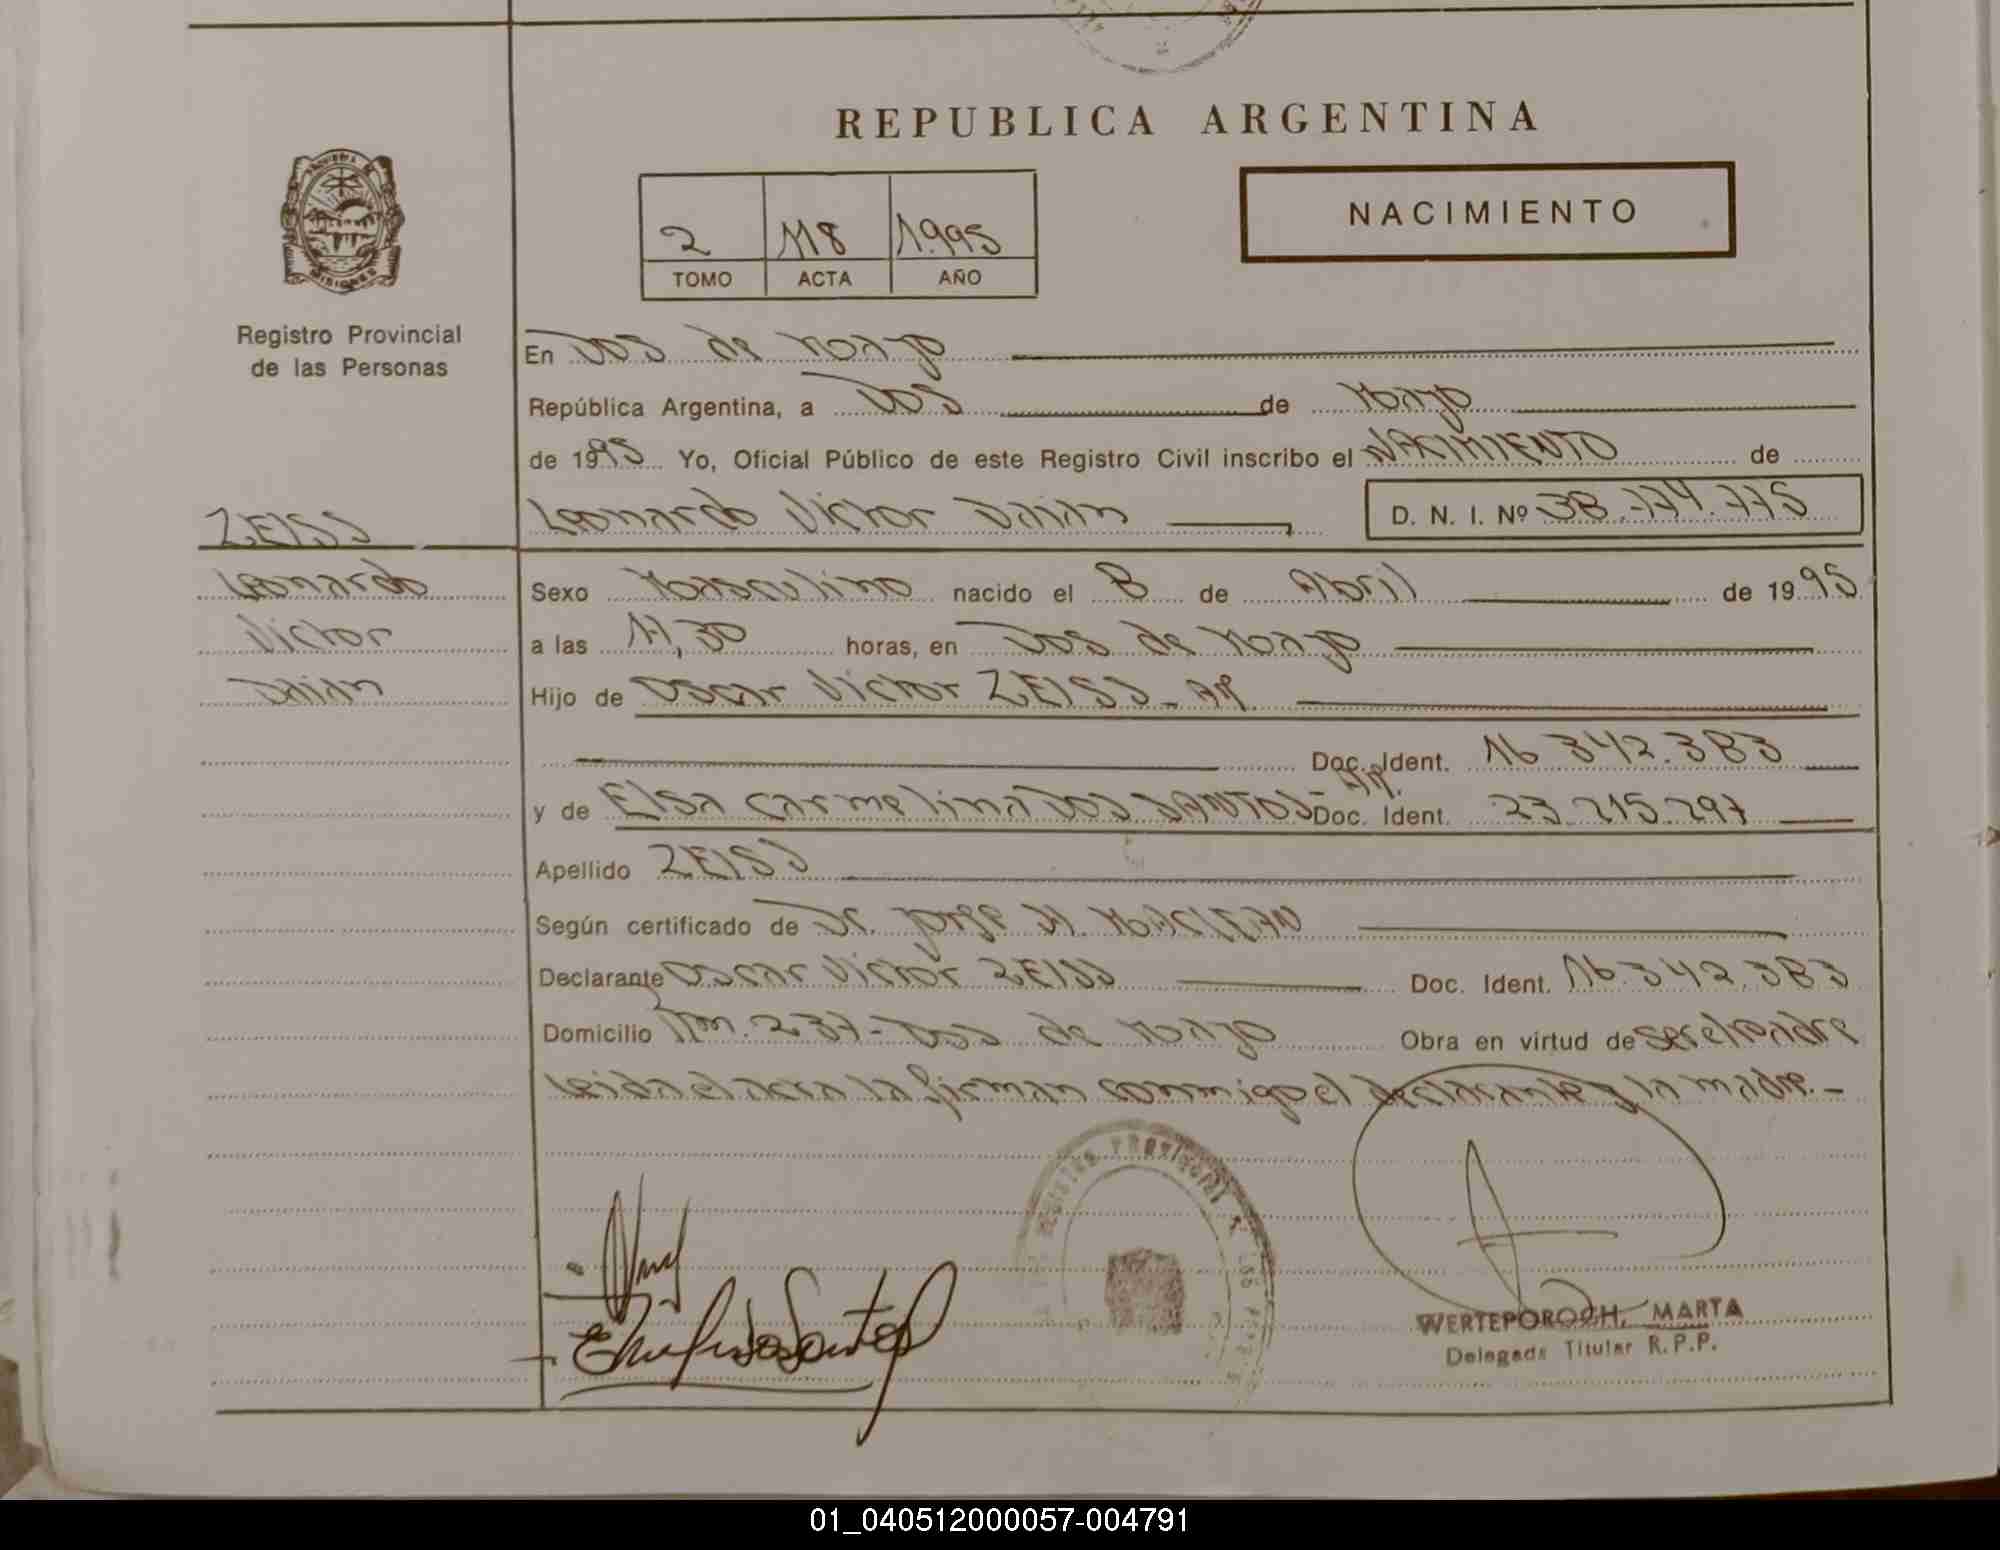 REPUBLICA ARGENTINA
NACIMIENTO
2 118 1.995
TOMO ACTA AÑO
MISIONES
Registro Provincial
de las Personas
En Dos de Mayo
República Argentina, a Dos de Mayo
de 1995 Yo, Oficial Público de este Registro Civil inscribo el NACIMIENTO de
Leonardo Victor Daian D. N. I. Nº 38.774.775
ZEISS
Leonardo
Victor
Daian
Sexo Masculino nacido el 8 de Abril de 1995
a las 11,30 horas, en Dos de Mayo
Hijo de Oscar Victor ZEISS - AR.
Doc. Ident. 16.342.383
y de Elsa Carmelina DOS SANTOS - AR. Doc. Ident. 23.215.297
Apellido ZEISS
Según certificado de Dr. Jorge H. MACLEAN
Declarante Oscar Victor ZEISS Doc. Ident. 16.342.383
Domicilio Km. 237 - Dos de Mayo Obra en virtud de ser el padre
Leida el acta la firman conmigo el declarante y la madre.-
REGISTRO PROVINCIAL
WERTEPOROCH, MARTA
Delegada Titular R.P.P.
01_040512000057-004791